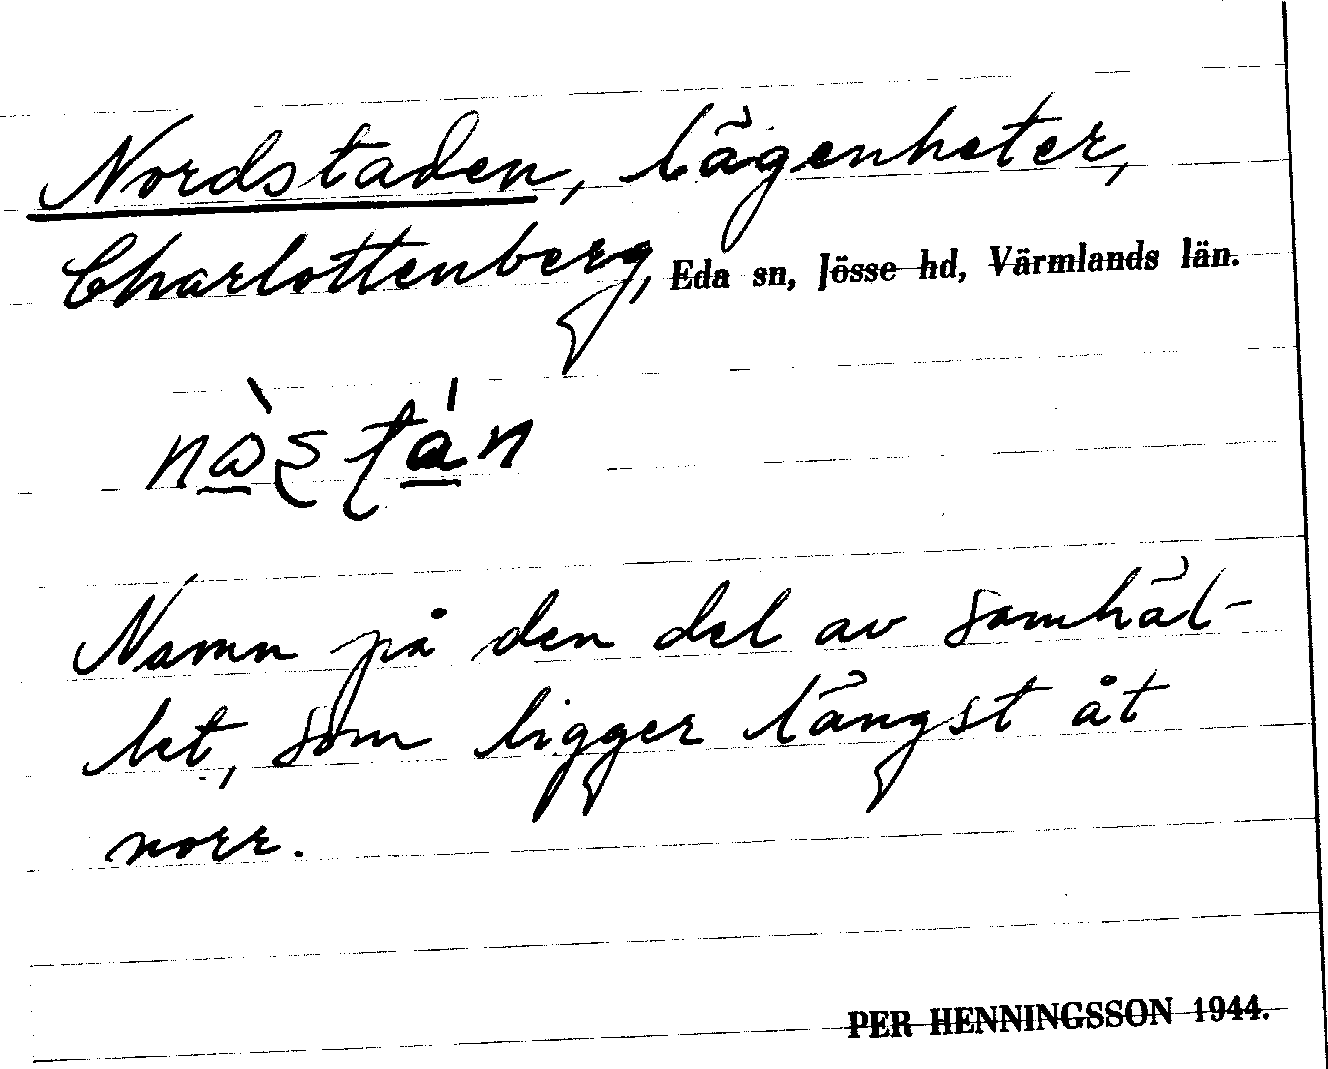 Nordstaden, lägenheter,
Charlottenberg, Eda sn, Jösse hd, Värmlands län.
Namn på den del av samhäl-
let, som ligger längst åt
norr.
PER HENNINGSSON 1944.